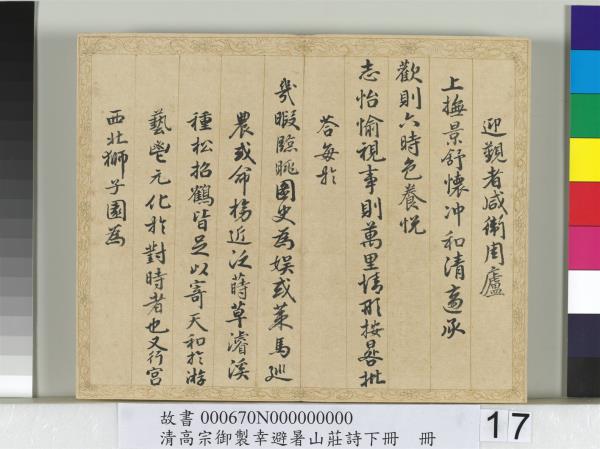 迎觀者咸衛周廬
上撫景舒懷沖和清適承
歡則六時色養悅
志怡愉視事則萬里情形按晷批
答每於
幾暇臨眺圖史為娛或策馬巡
農或命榜近泛蒔草濬溪
種松招鶴皆足以寄天和於游
藝鬯元化於對時者也又行宮
西北獅子園為
故書 000670N000000000
清高宗御製幸避暑山莊詩下冊 冊
17